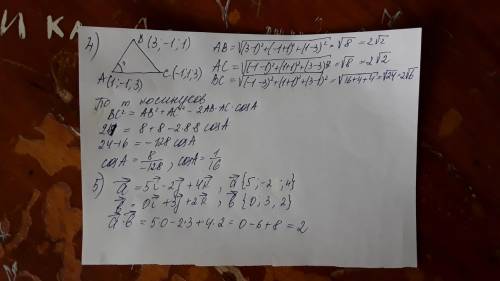 4)
B (3, -1; 1)
A (1; -1, 3)
C (-1; 1, 3)
AB = √(3-1)²+(-1+1)²+(1-3)² = √8 = 2√2
AC = √(-1-1)²+(1+1)²+(3-3)² = √8 = 2√2
BC = √(-1-3)²+(1+1)²+(3-1)² = √16+4+4 = √24 = 2√6
По т косинусов
BC² = AB² + AC² - 2AB·AC·cosA
24 = 8+8-2·8·8 cosA
24-16 = -128 cosA
cosA = 8/-128, cosA = 1/16
5) a⃗ = 5i⃗ - 2j⃗ + 4k⃗, a⃗ {5, -2; 4}
b⃗ = 0i⃗ + 3j⃗ + 2k⃗, b⃗ {0, 3, 2}
a⃗·b⃗ = 5·0-2·3+4·2 = 0-6+8 = 2